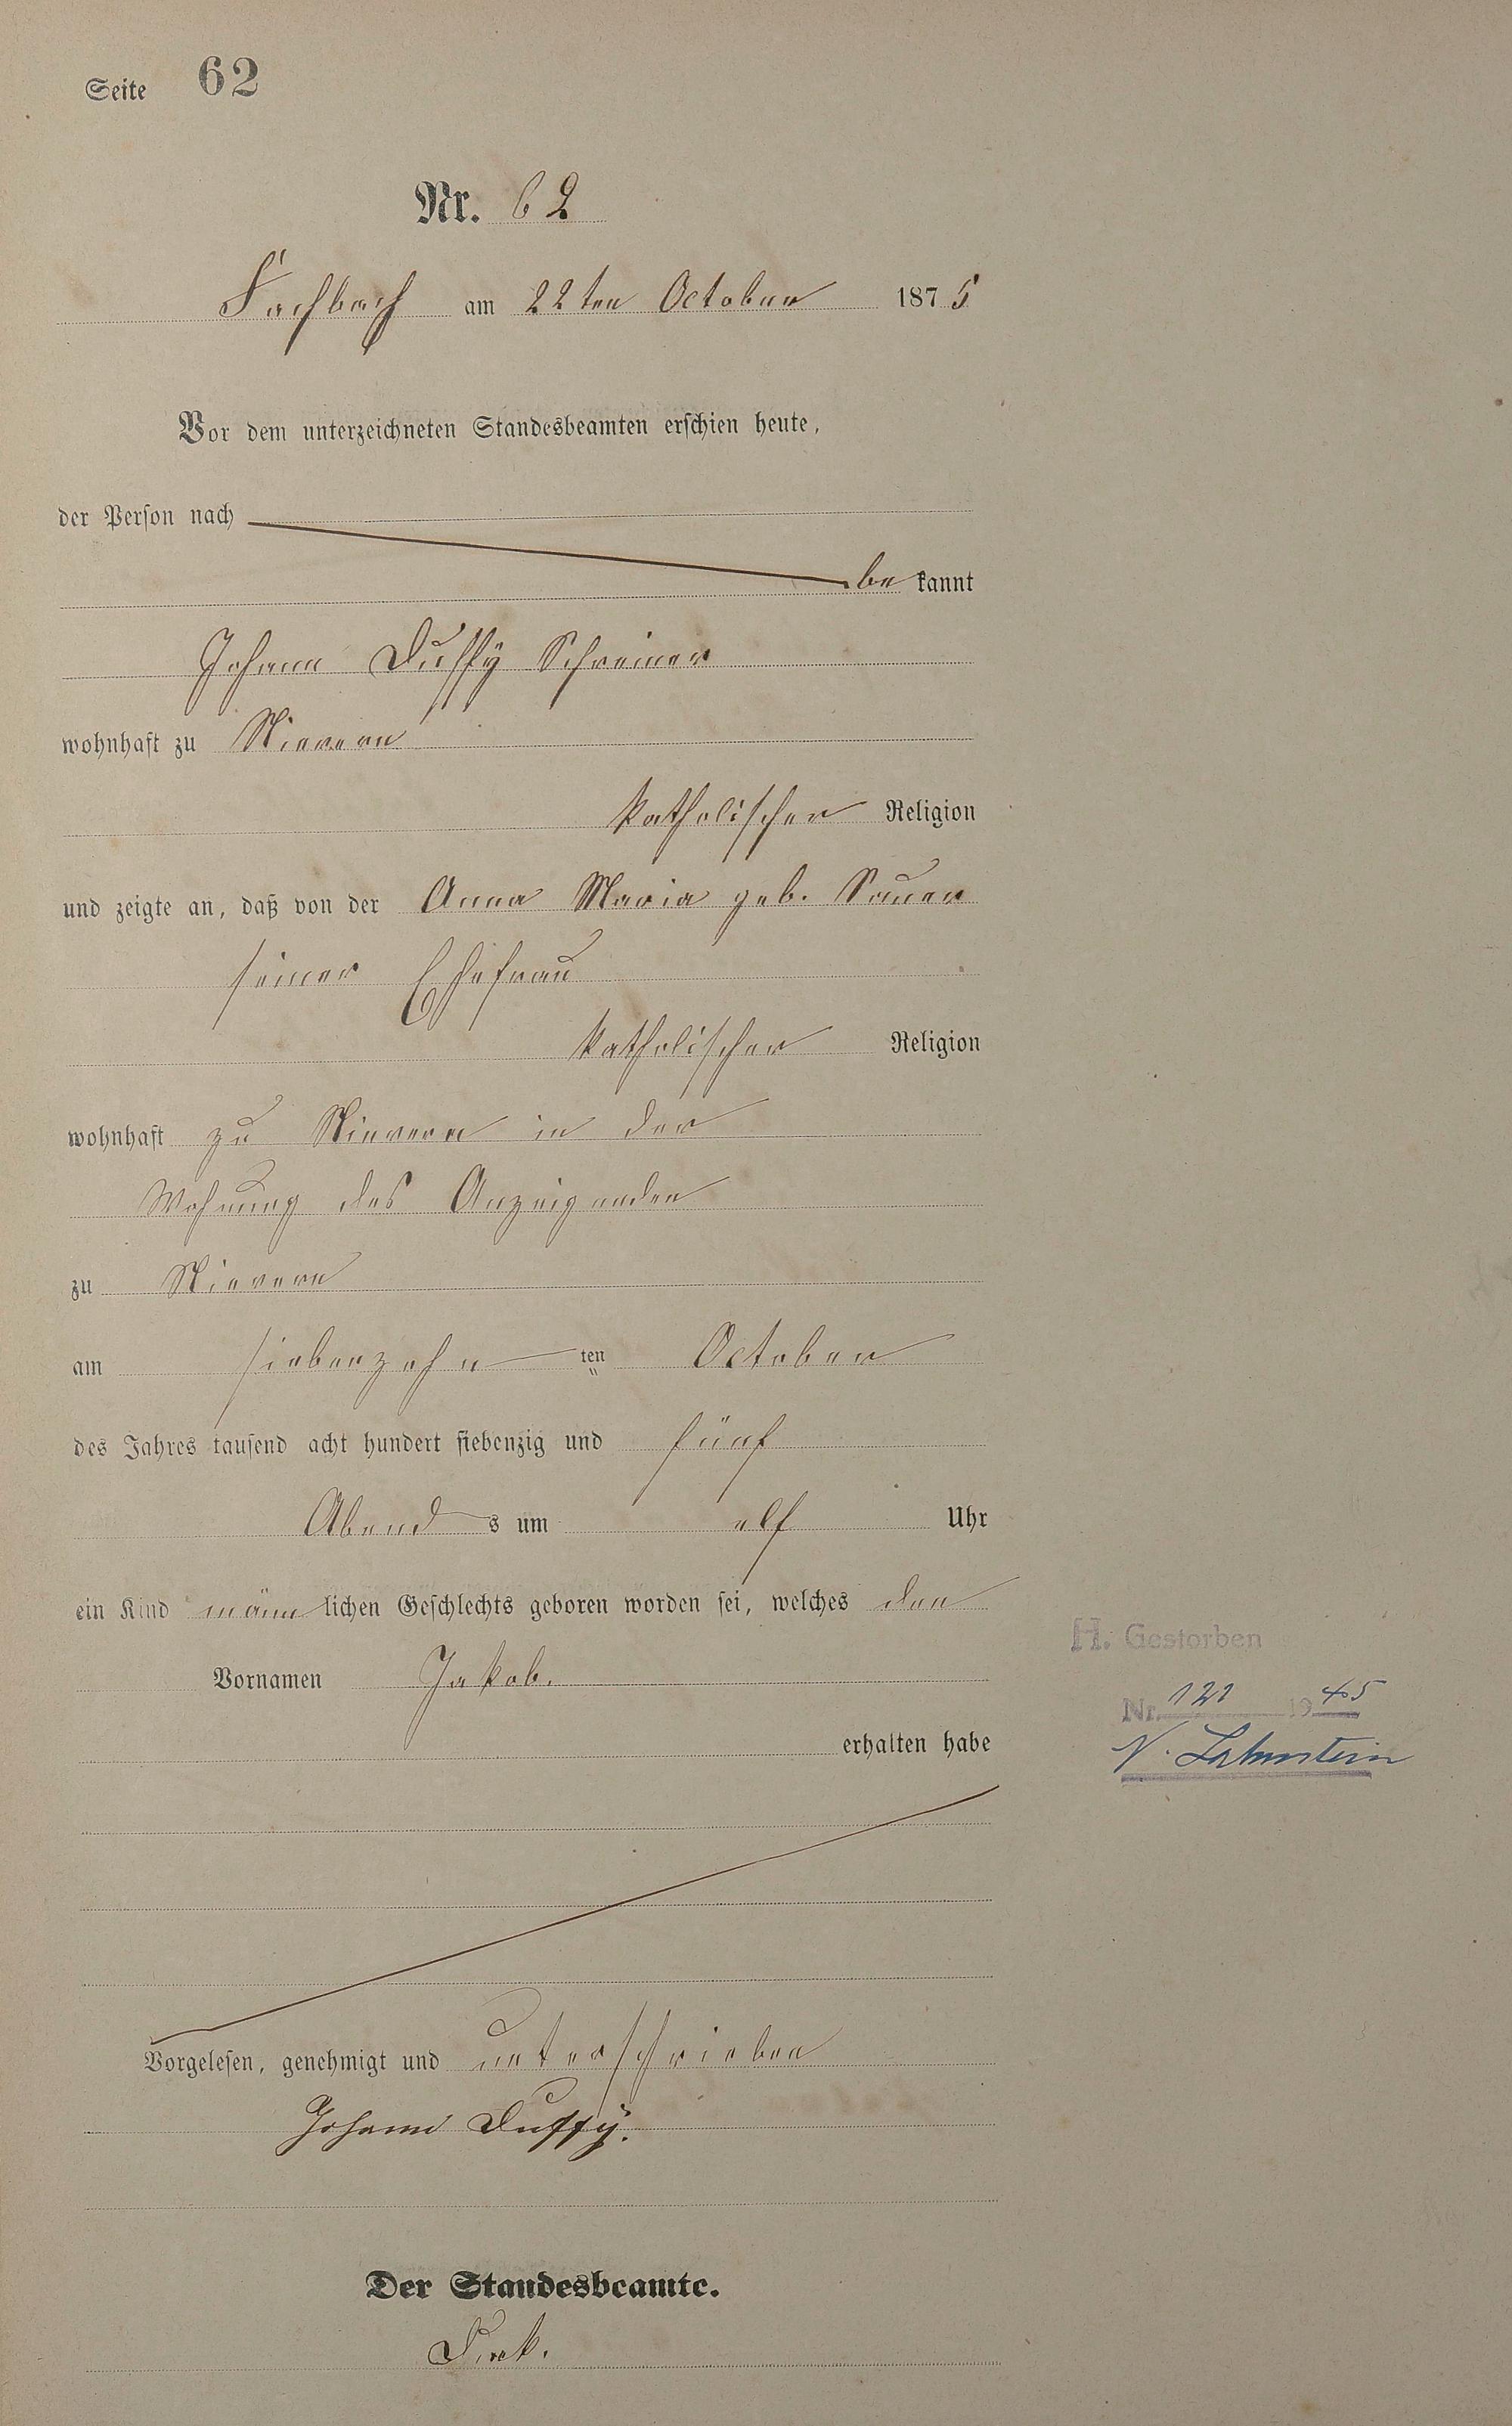 Seite 62
Nr. 62
Fachbach am 22ten October 1875
Vor dem unterzeichneten Standesbeamten erschien heute,
der Person nach
be kannt
Johann Dussÿ Schreiner
wohnhaft zu Nievern
katholischer Religion
und zeigte an, daß von der Anna Maria geb. Sauer
seiner Ehefrau
katholischer Religion
wohnhaft zu Nievern in der
Wohnung des Anzeigenden
zu Nievern
am siebenzehn ten October
des Jahres tausend acht hundert siebenzig und fünf
Abend s um elf Uhr
ein Kind männ lichen Geschlechts geboren worden sei, welches den
Vornamen Jakob.
erhalten habe
H. Gestorben
Nr. 121 1945
N. Lahnstein
Vorgelesen, genehmigt und unterschrieben
Johann Dussÿ.
Der Standesbeamte.